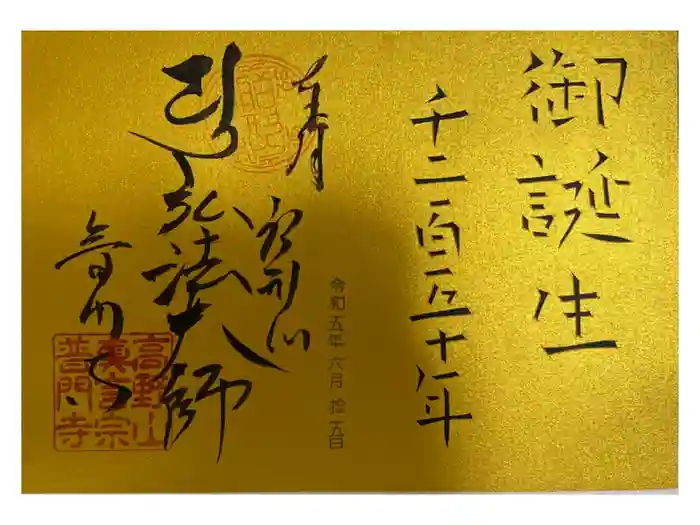 御誕生
千二百五十年
奉拝
令和五年 六月 拾五日
弘法大師
普門寺
高野山
真言宗
普門寺